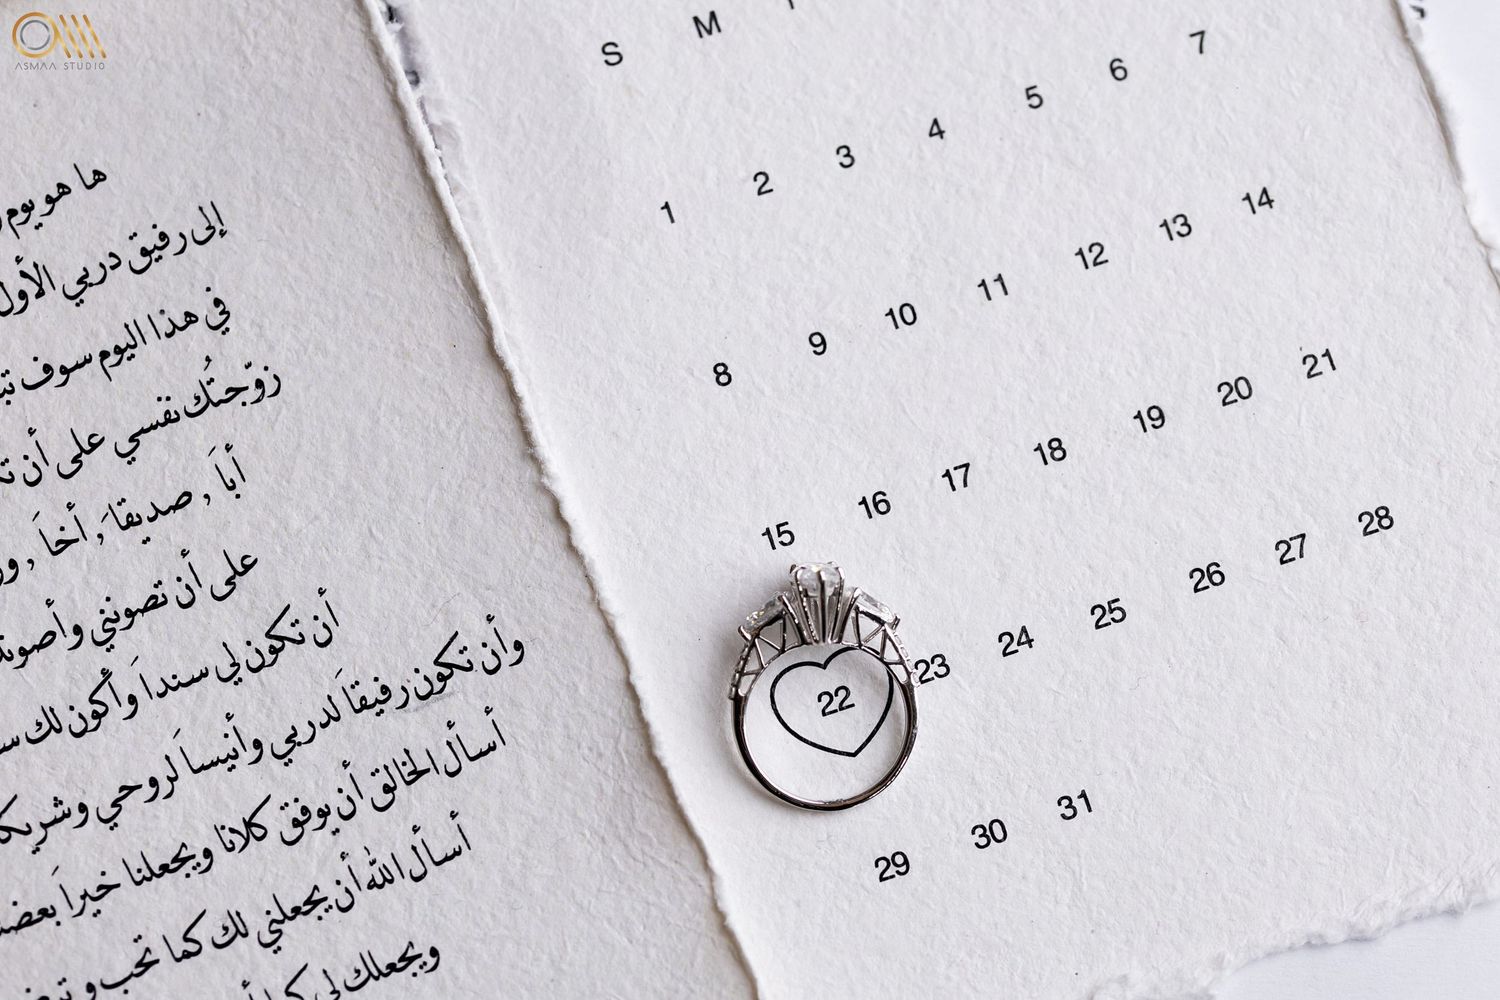 ASMAA STUDIO
ها هو يوم
إلى رفيق دربي الأول
في هذا اليوم سوف
زوّجتُك نفسي على أن
أباَ , صديقاَ , أخاَ ,
على أن تصونني وأصونك
أن تكون لي سنداَ وأكون لك
وأن تكون رفيقاَ لدربي وأنيساَ لروحي
أسأل الخالق أن يوفق كلانا ويجعلنا خيراَ
أسأل الله أن يجعلني لك كما تحب
ويجعلك لي كما
S M
1 2 3 4 5 6 7
8 9 10 11 12 13 14
15 16 17 18 19 20 21
22 23 24 25 26 27 28
29 30 31